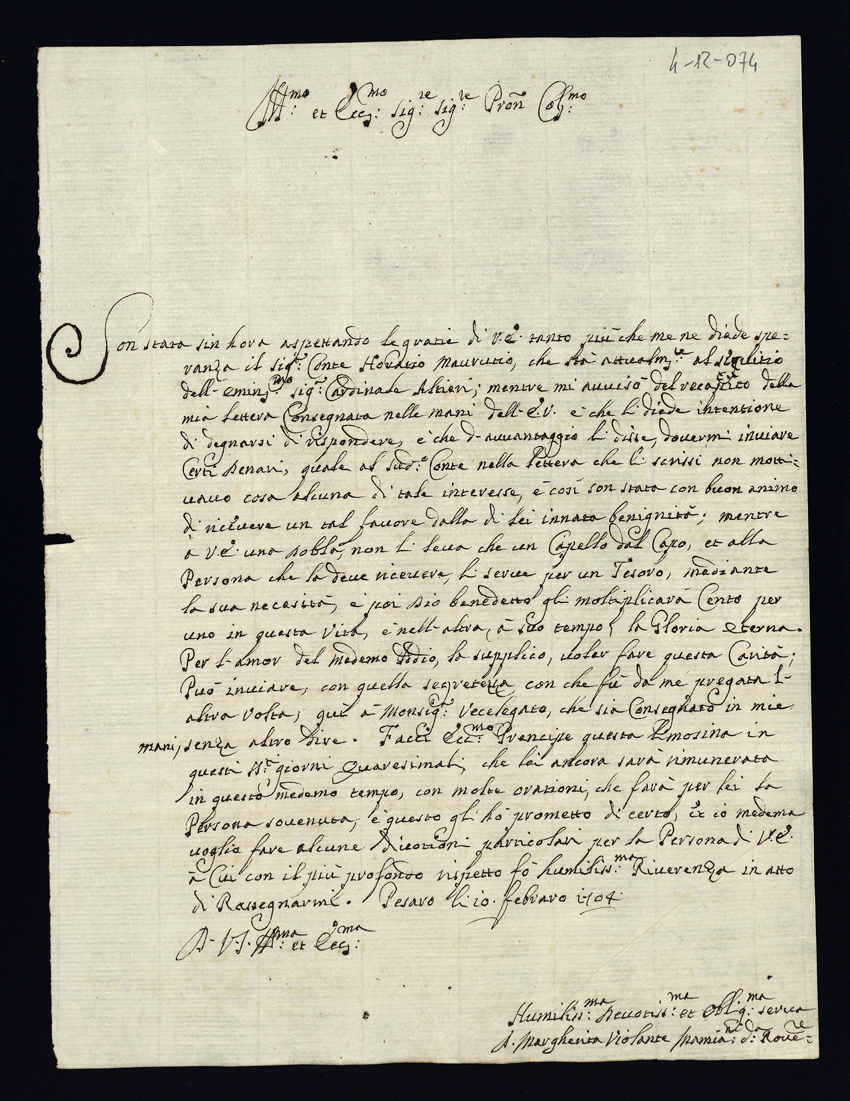 4-12-074
Ill:mo et Ecc:mo Sig:re Sig:re Pron Col:mo
Son stata sin hora aspettando le gratie di V.E. tanto più che me ne diede spe=
ranza il Sig:r Conte Horatio Maurutio, che stà attualm:te al
dell'Emin:mo Sig:r Cardinale Altieri; mentre mi avvisò del recapito della
mia lettera Consegnata nelle mani dell'E.V. e che li diede intentione
di degnarsi di rispondere, e che d'avvantaggio li disse, dovermi inviare
Certi Denari, quale al Sud:o Conte nella lettera che li scrissi non motti=
vavo cosa alcuna di tale interesse, e così son stata con buon animo
di ricevere un tal favore dalla di Lei innata benignità; mentre
à V.E. una Dobla, non li leva che un Capello dal Capo, et alla
Persona che la deve ricevere, li serve per un Tesoro, mediante
la sua necesità, e poi Dio benedetto gli moltiplicarà Cento per
uno in questa Vita, e nell'altra, à suo tempo, la Gloria eterna.
Per l'amor del medemo Iddio, la supplico, voler fare questa Carità;
Può inviare, con quella segretezza con che fù da me pregata l'
altra volta, quì à Monsig:r Vecelegato, che sia Consegnato in mie
mani, senza altro dire. Facci Ecc:mo Prencipe questa Elmosina in
questi S:ti giorni Quaresimali, che lei ancora sarà rimunerata
in questo medemo tempo, con molte orationi, che farà per lei la
Persona sovenuta, e questo gli hò prometto di certo, et io medema
voglio fare alcune divotioni particolari per la Persona di V.E.
à Cui con il più profondo rispetto fò humiliss:ma Riverenza in atto
di Rassegnarmi. Pesaro li 10. febraro 1704
D. V. Ill:ma et Ecc:ma
Humiliss:ma Devotiss:ma et Oblig:ma Serva
D. Margherita Violante Mamia: d: Rove=re